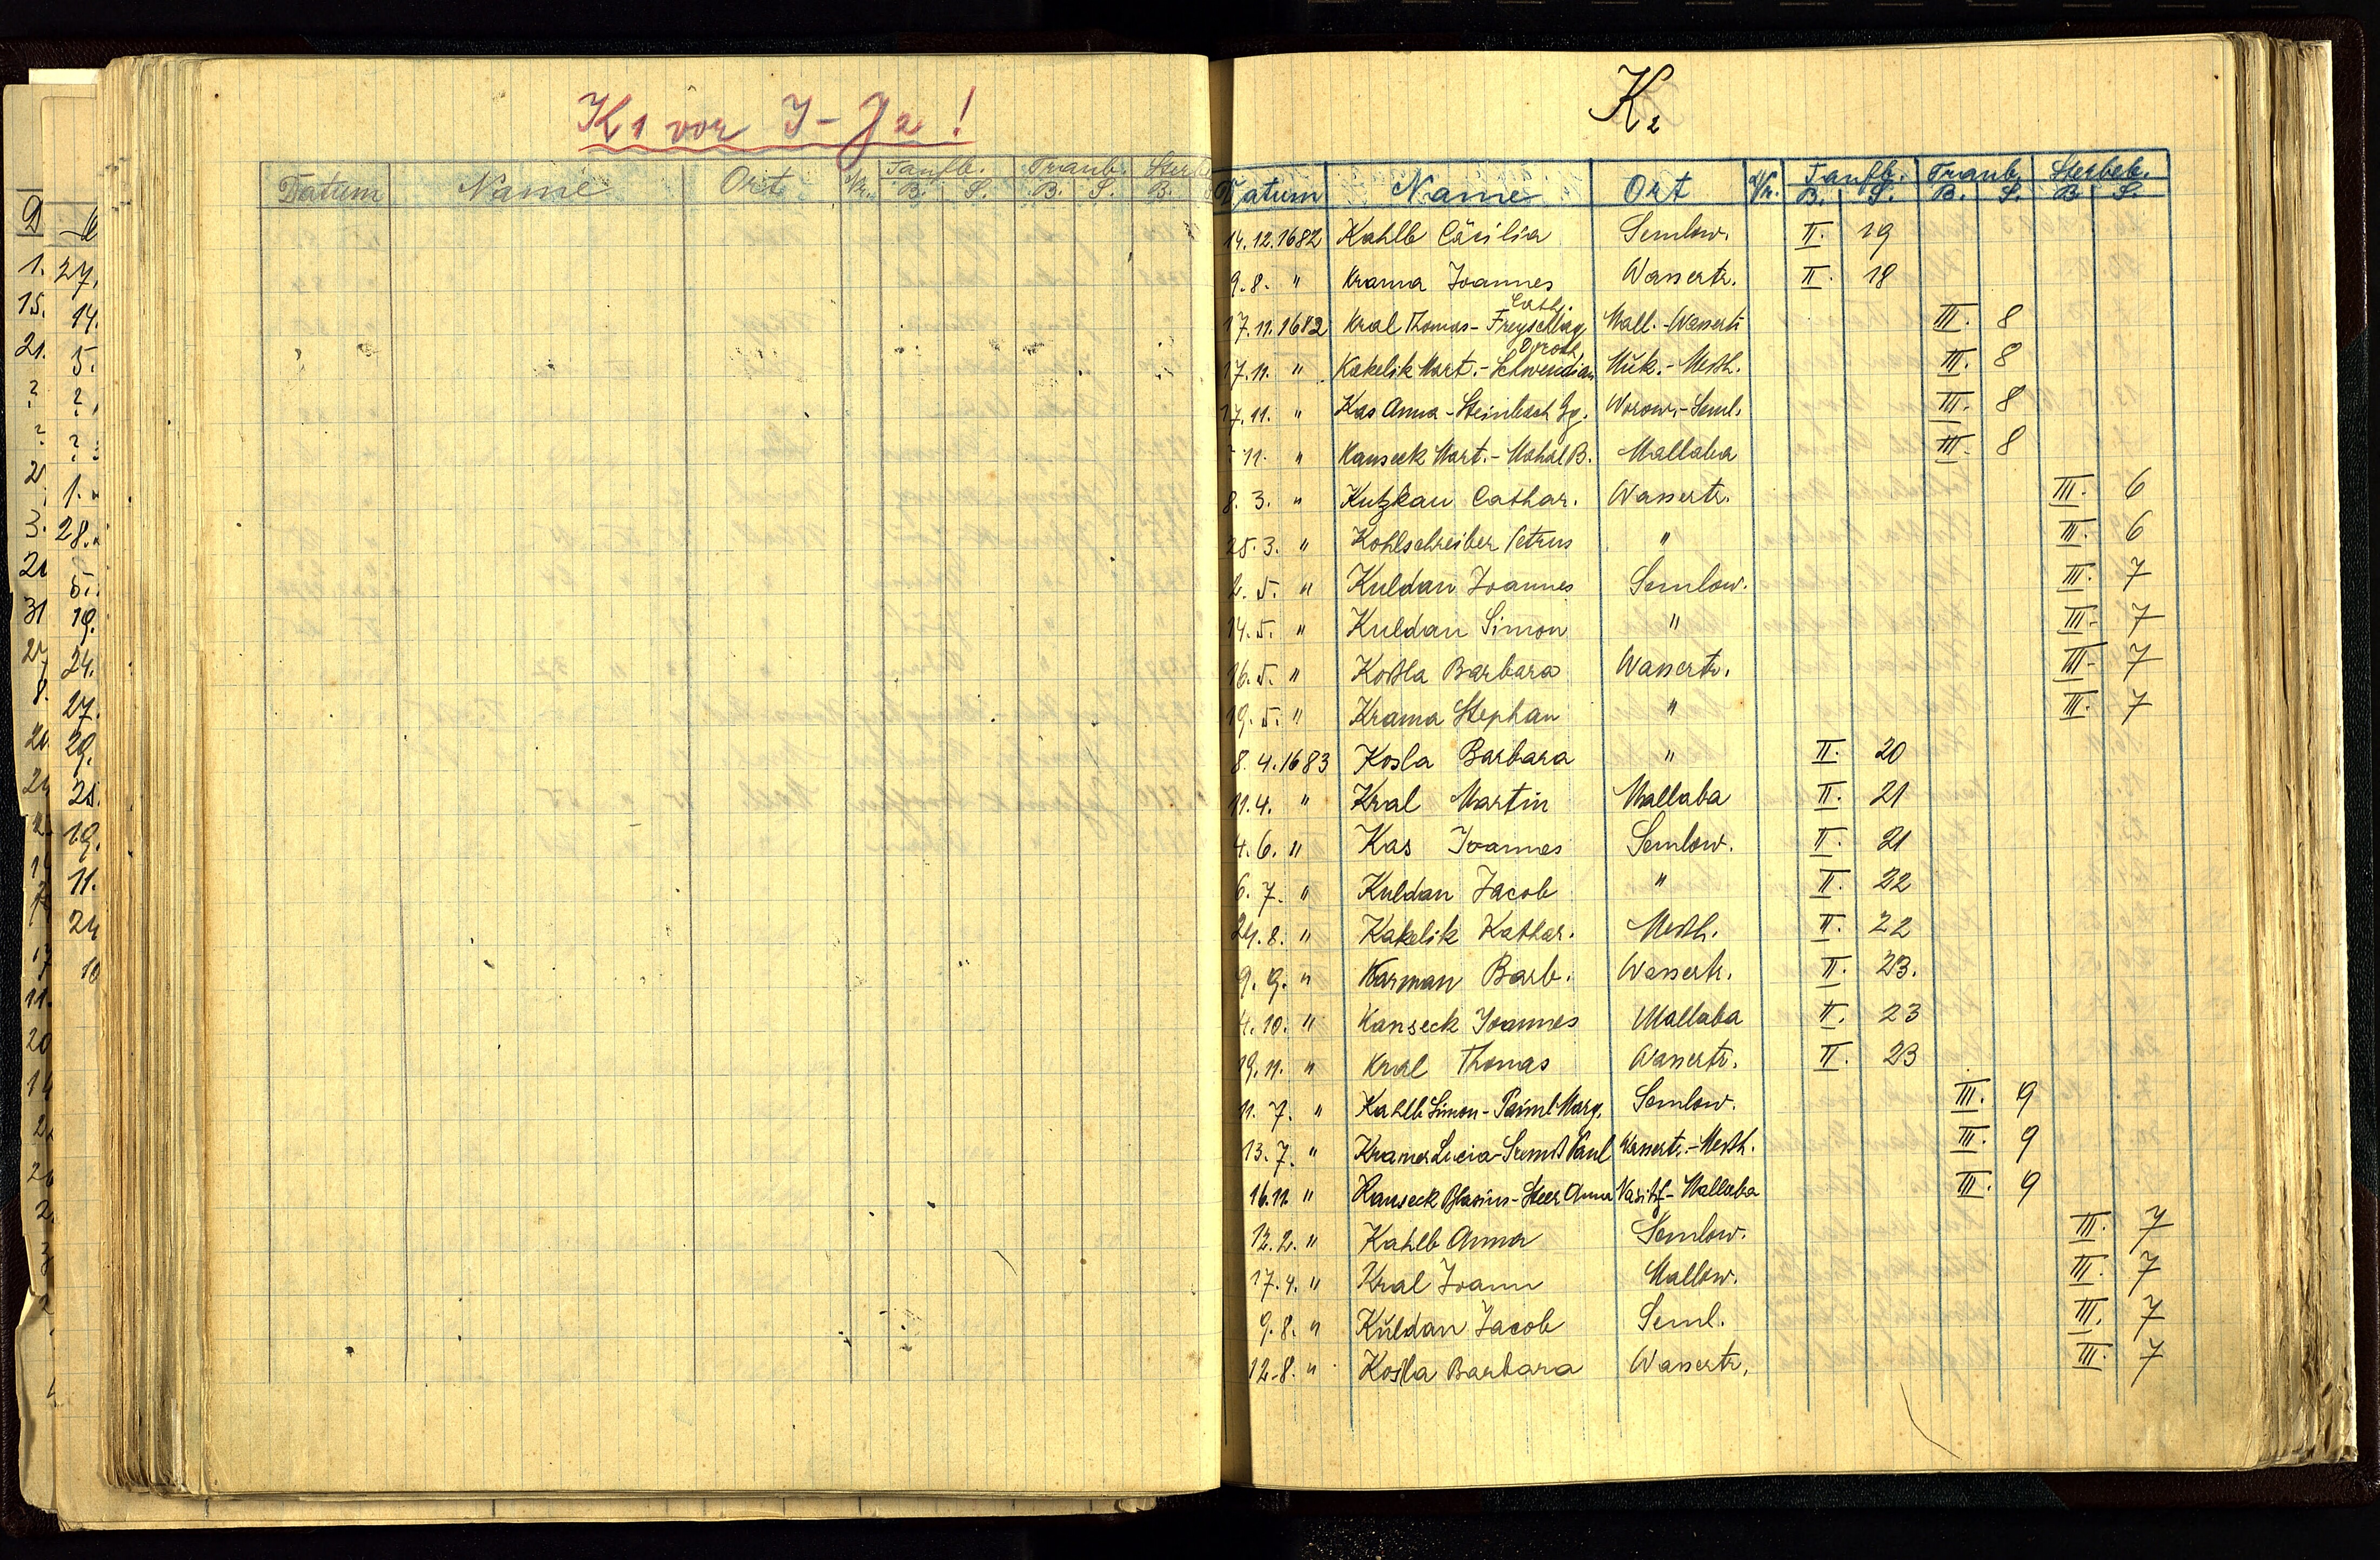 K1 vor I-J2!
Datum Name Ort Nr. Taufb. Traub. Sterb
B. S. B. S. B.
D
1. 27.
15. 14.
21. 5.
? ?
? ?
2 1. "
3. 28. "
21 5.
31 19.
24.
8. 27.
20 29.
25.
19.
11.
24
10
11.
20
14
K2
Datum Name Ort Nr. Taufb. Traub. Sterbeb.
B. S. B. S. B. S.
14.12.1682 Kahlb Cäcilia Semlow. II. 19
9.8. " Krama Joannes Wassertr. II. 18
Cath.
17.11.1682 Kral Thomas - Freyschlag Mall.-Wassertr. III. 8
Doroth.
17.11. " Kakelik Mart. - Schwendian Mük. - Meßh. III. 8
17.11. " Kas Anna - Steinbach Gg. Worow. - Seml. III. 8
? 11. " Kanseck Mart. - Mahal B. Mallaba III. 8
8. 3. " Kutzkau Cathar. Wassertr. III. 6
25. 3. " Kohlschreiber Petrus " III. 6
2. 5. " Kuldan Joannes Semlow. III. 7
14. 5. " Kuldan Simon " III. 7
16. 5. " Koßla Barbara Wassertr. III. 7
19. 5. " Krama Stephan " III. 7
8. 4. 1683 Kosla Barbara " II. 20
11. 4. " Kral Martin Mallaba II. 21
4. 6. " Kas Joannes Semlow. II. 21
6. 7. " Kuldan Jacob " II. 22
24. 8. " Kakelik Kathar. Meßh. II. 22
9. 9. " Karman Barb. Wassertr. II. 23.
4. 10. " Kanseck Joannes Mallaba II. 23
19. 11. " Kral Thomas Wassertr. II. 23
11. 7. " Kahlb Simon - Paiml Marg. Semlow. III. 9
13. 7. " Kramer Lucia - Paul Wassertr. - Meßh. III. 9
16.11. " Kanseck Blasius - Steer Anna - Mallaba III. 9
12. 2. " Kahlb Anna Semlow. III. 7
17. 4. " Kral Joann Mallow. III. 7
9. 8. " Kŭldan Jacob Seml. III. 7
12. 8. " Kosla Barbara Wassertr. III. 7